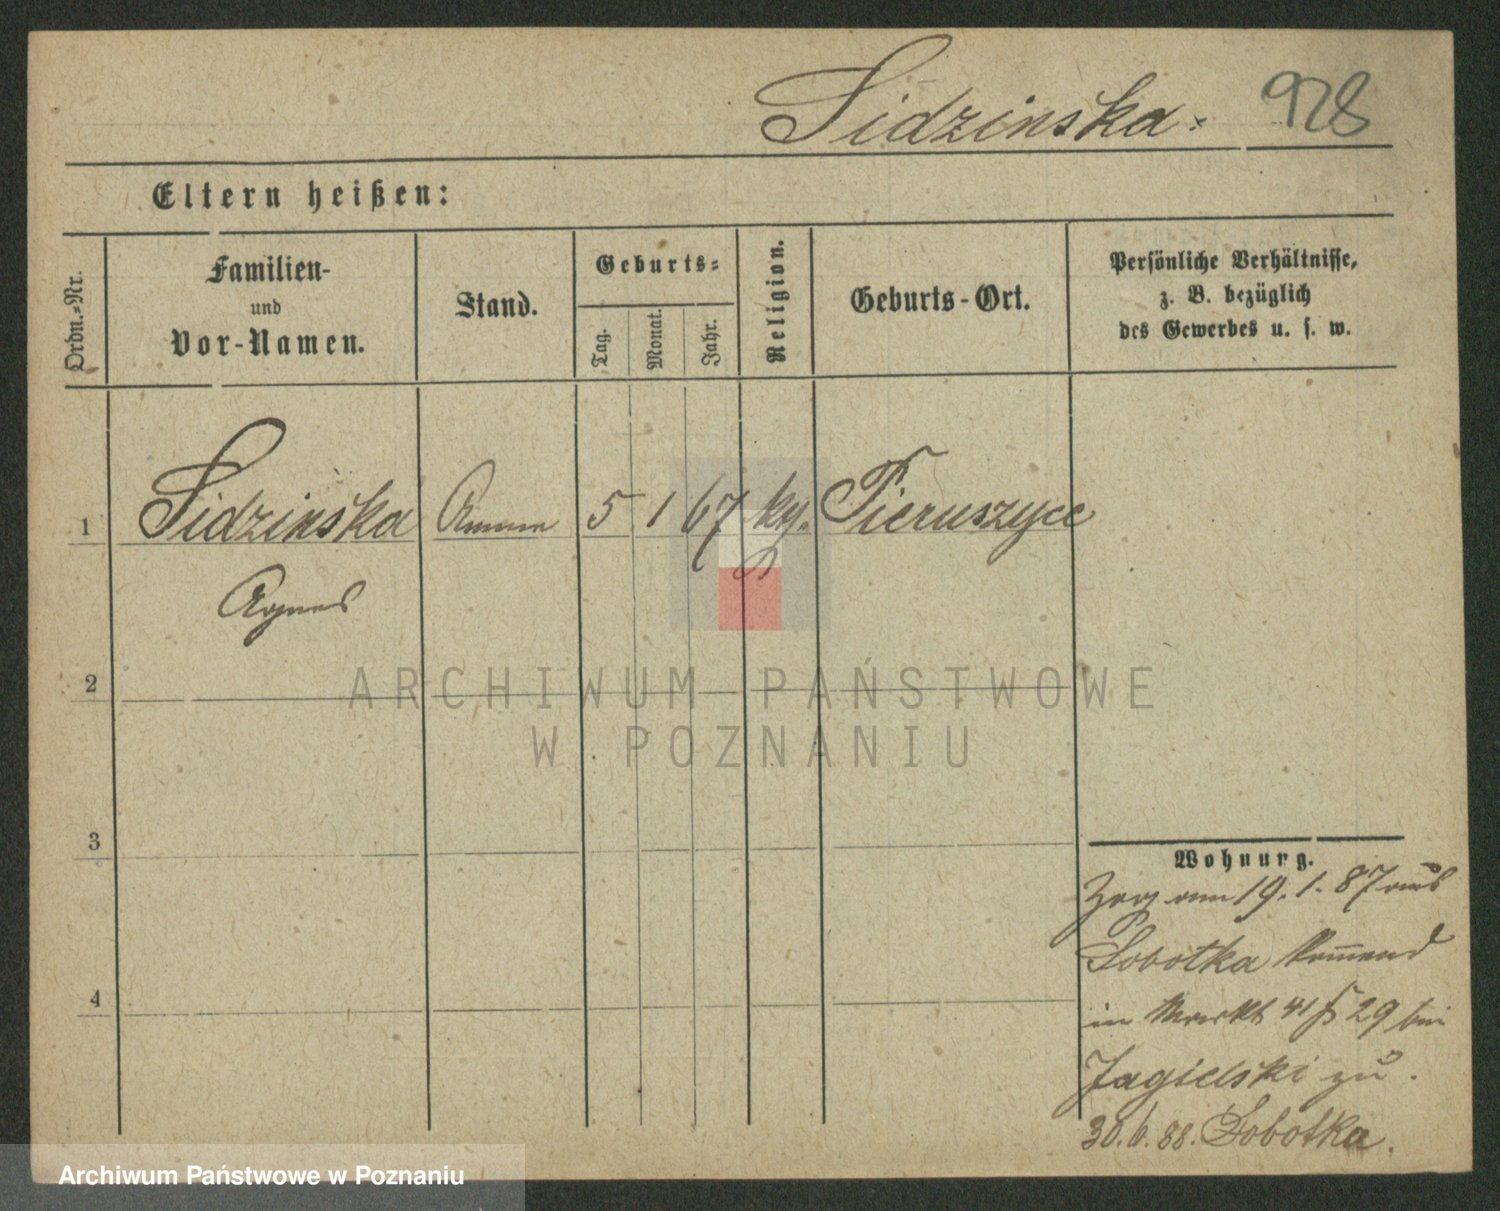 Sidzinska. 928
Eltern heißen:
Ordn.-Nr.
Familien-
und
Vor-Namen.
Stand.
Geburts-
Tag.
Monat.
Jahr.
Religion.
Geburts-Ort.
Persönliche Verhältnisse,
z. B. bezüglich
des Gewerbes u. s. w.
1 Sidzinska Amme 5 1 67 Pieruszyce
Agnes
2
3
4
Wohnung.
Zog am 19. 1. 87 aus
Sobotka
in Markt 29 bei
Jagielski zu.
30.6.88. Sobotka.
ARCHIWUM PAŃSTWOWE
W POZNANIU
Archiwum Państwowe w Poznaniu